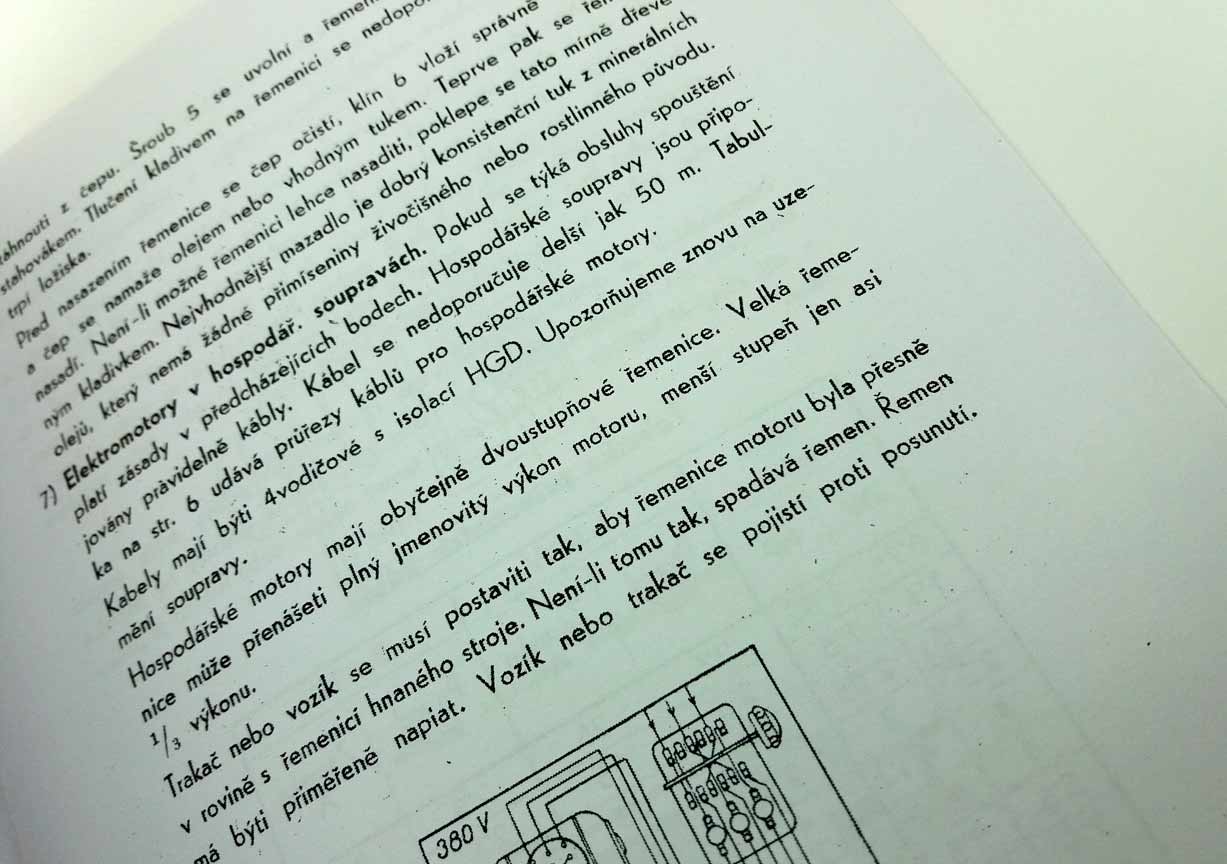 z čepu. Šroub 5 se uvolní a
stahovákem. Tlučení kladivem na řemenici se
trpí ložiska.
Před nasazením řemenice se čep očistí, klín 6 vloží správně
a čep se namaže olejem nebo vhodným tukem. Teprve pak se
nasadí. Není-li možné řemenici lehce nasaditi, poklepe se tato mírně
ným kladivkem. Nejvhodnější mazadlo je dobrý konsistenční tuk z minerálních
olejů, který nemá žádné přimíseniny živočišného nebo rostlinného původu.
7) Elektromotory v hospodář. soupravách. Pokud se týká obsluhy spouštění
platí zásady v předcházejících bodech. Hospodářské soupravy jsou připo-
jovány pràvidelně kábly. Kábel se nedoporučuje delší jak 50 m. Tabul-
ka na str. 6 udává průřezy káblů pro hospodářské motory.
Kabely mají býti 4vodičové s isolací HGD. Upozorňujeme znovu na uze-
mění soupravy.
Hospodářské motory mají obyčejně dvoustupňové řemenice. Velká řeme-
nice může přenášeti plný jmenovitý výkon motoru, menší stupeň jen asi
1/3 výkonu.
Trakač nebo vozík se musí postaviti tak, aby řemenice motoru byla přesně
v rovině s řemenicí hnaného stroje. Není-li tomu tak, spadává řemen. Řemen
má býti přiměřeně napiat. Vozík nebo trakač se pojistí proti posunutí.
380 V